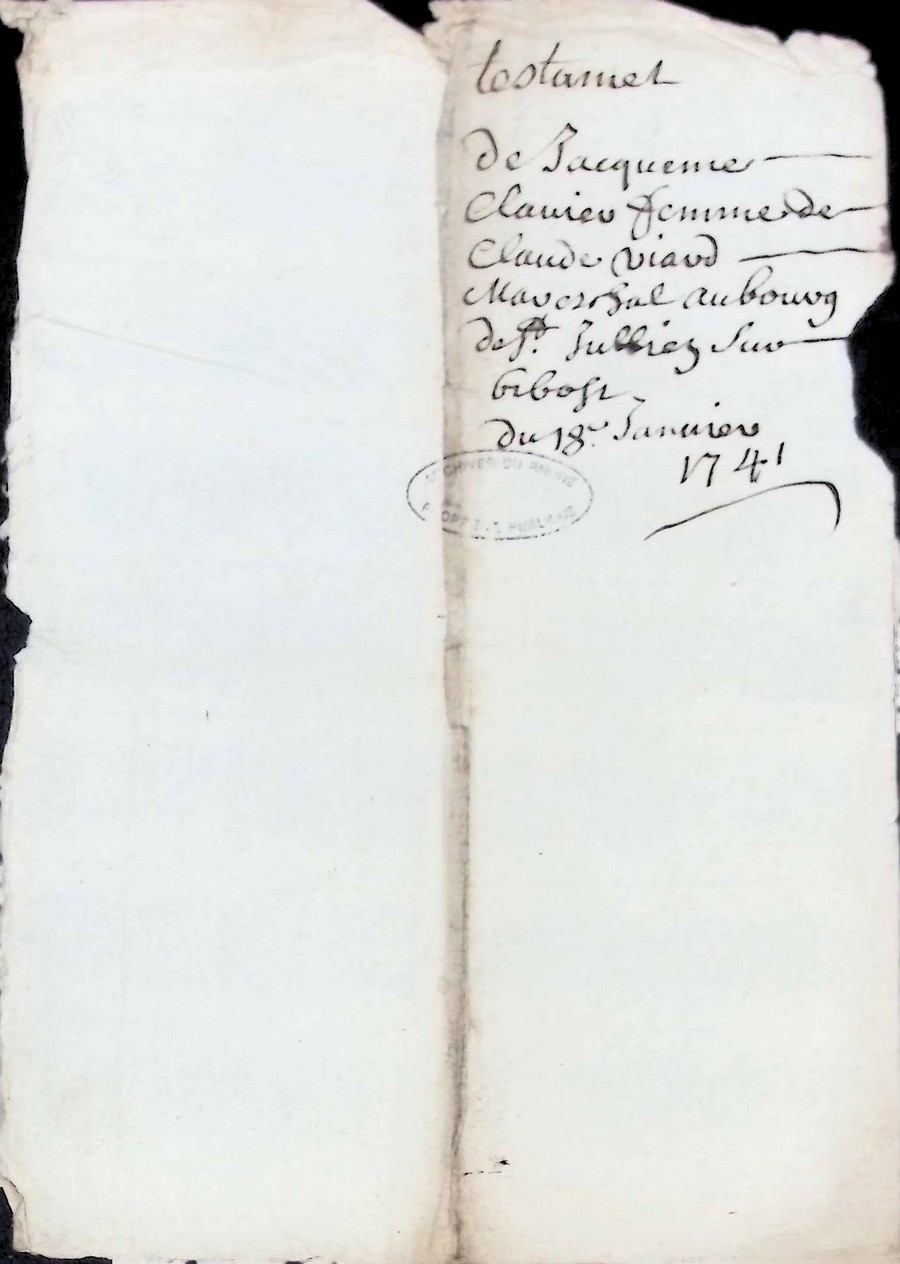 testamet
de Jacqueme
Clavier femme de
Claude Viard
Mareschal au bourg
de St. Jullien sur
bibost
du 18e. Janvier
1741
ARCHIVES DU RHONE
PROPRIÉTÉ PUBLIQUE